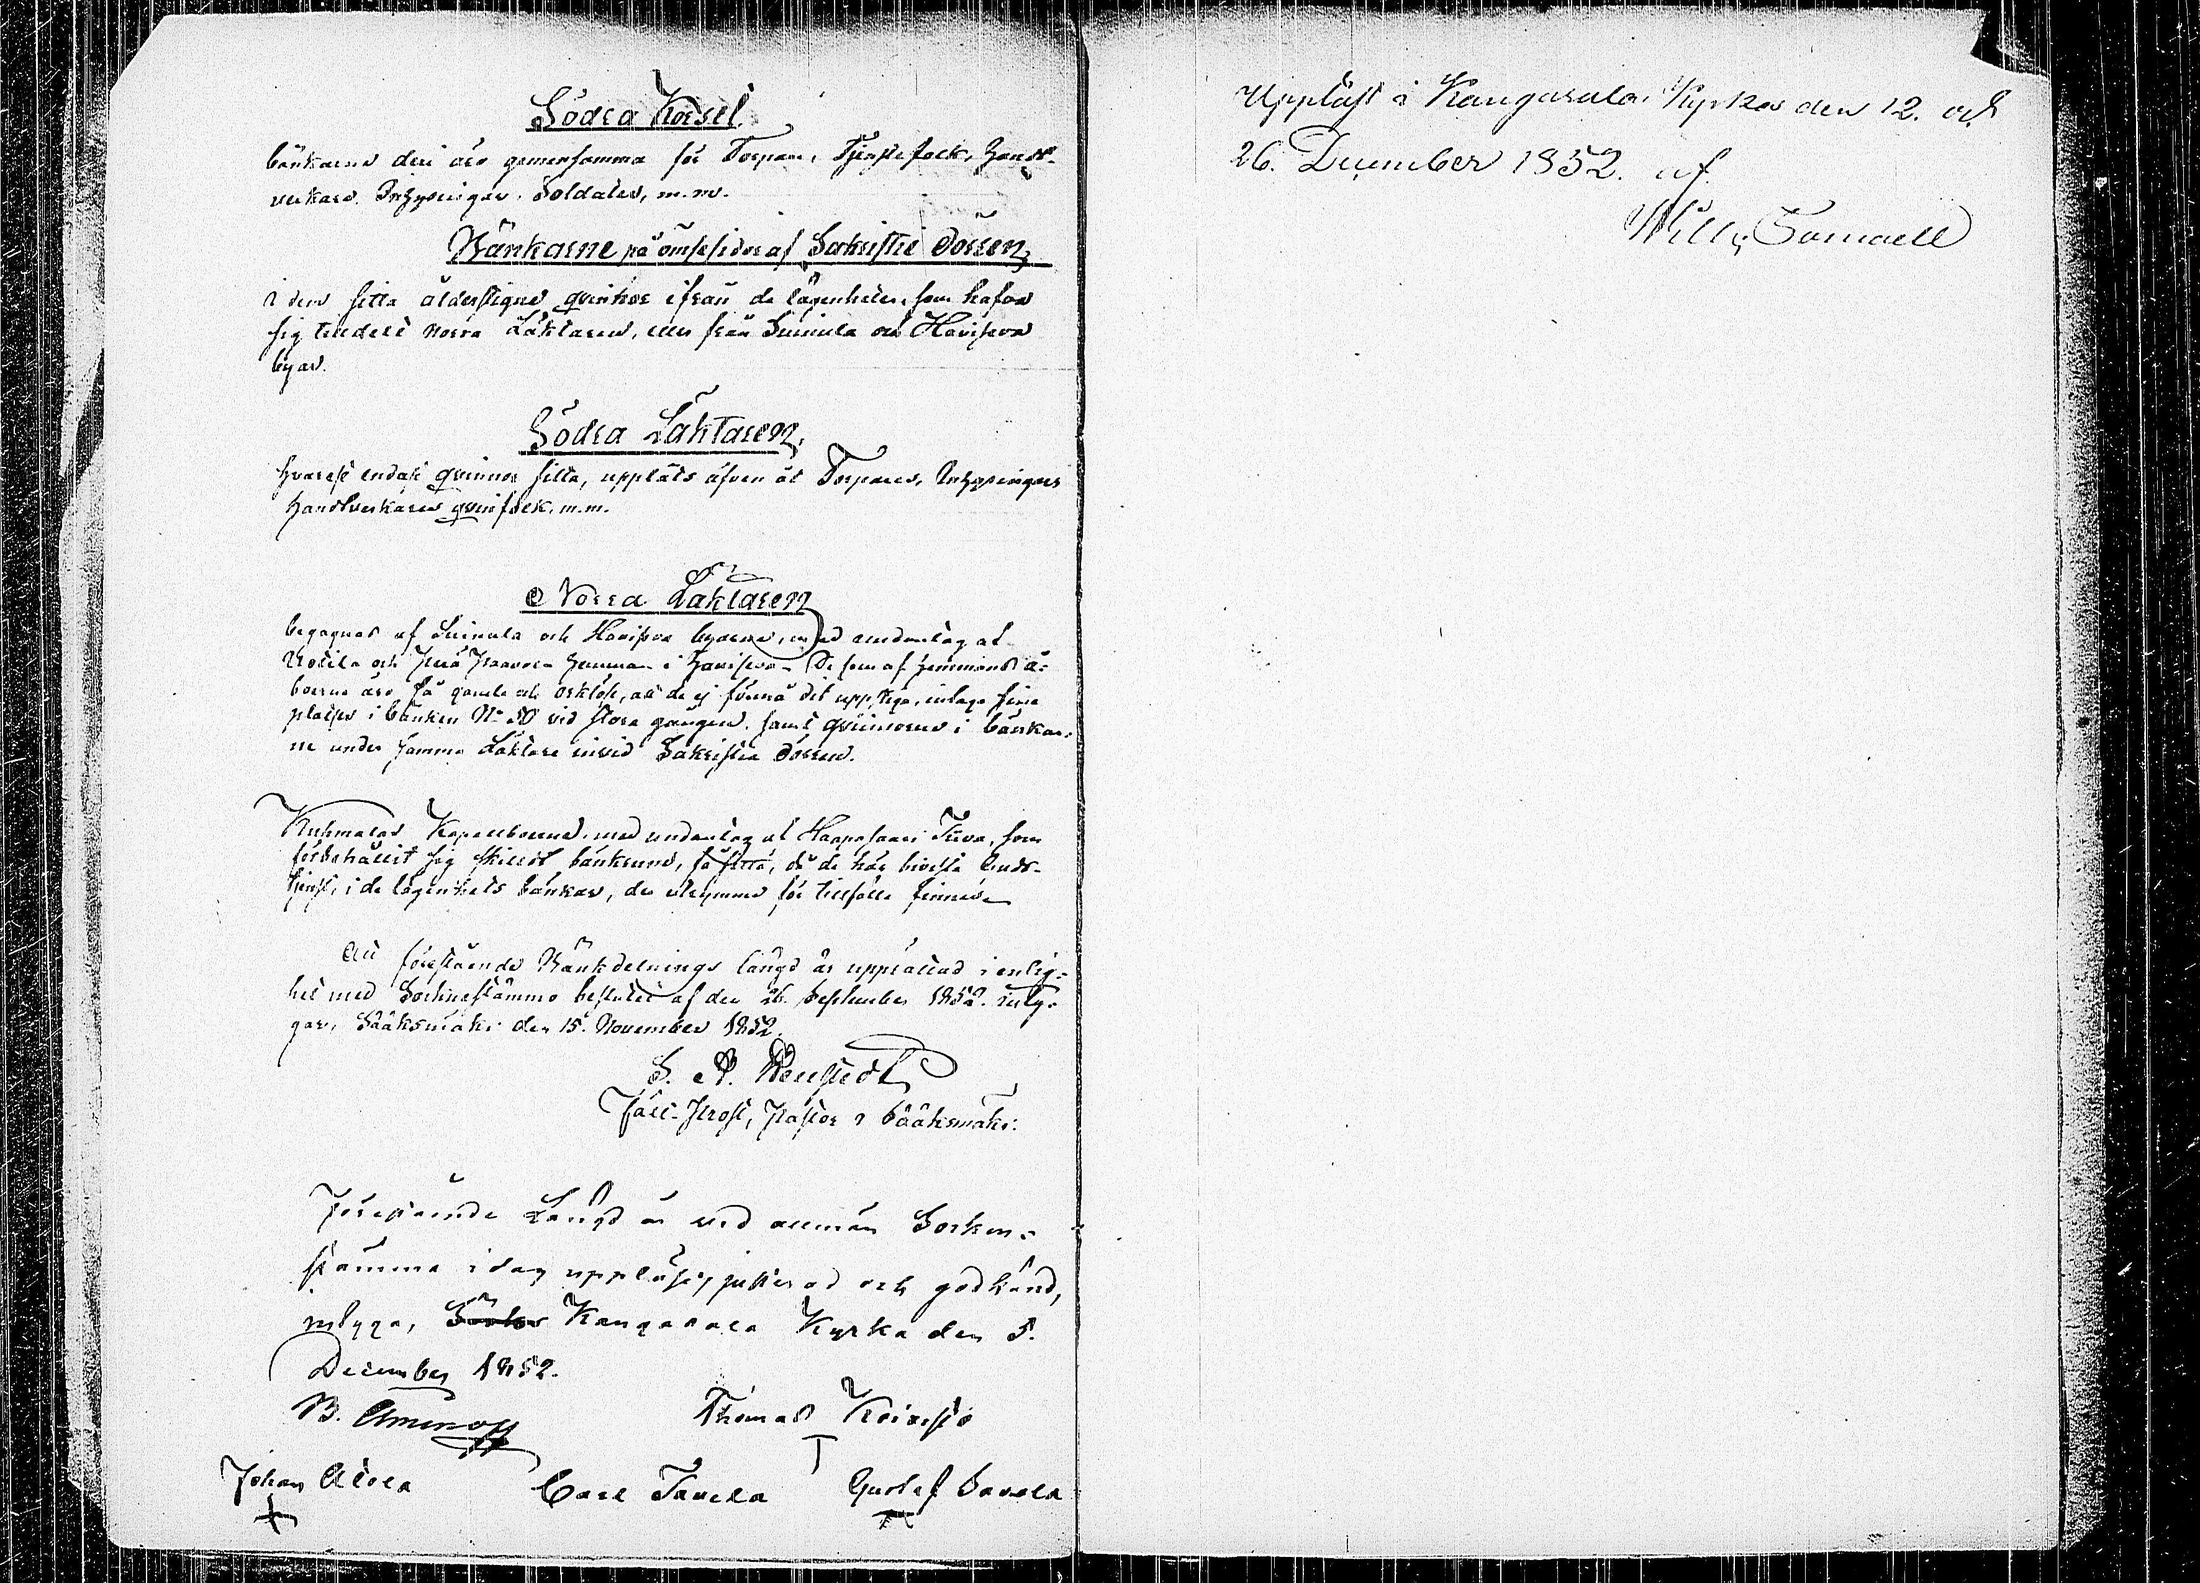 Södra Korset
bänkarne deri äro gemensamma för Torpare, Tjenstefolk, Handt-
verkare Inhysingar, Soldater, m.m.
Bänkarne på ömse sidor af Sakristie dörren,
i dem sitta ålderstigne qvinkor ifrån de lägenheter, som hafva
sig tilldelt Norra Läktaren, eller från Suinula och Havisevo
byar.
Södra Läktaren,
hvarest endast qvinnor sitta, upplåts äfven åt Torpares, Inhysingars
Handtverkares qvinfolk, m.m.
Norra Läktaren
begagnas af Suinula och Havisevo byarne, med undantag af
Uotila och Paavola hemman i Havisevo. De som af hemmans å-
boerne äro så gamla och orklöse, att de ej förmå dit uppstiga, intaga sine
platser i bänken N:o 50 vid stora gången, samt qvinnorne i bänkar-
ne under samma Läktare invid Sakristie dörren.
Kuhmalax Kapellboerne med undantag af Haapasaari Tiiva, som
förbehållit sig skildt bänkrum, få sitta, då de här bevista Guds-
tjenst, i de lägenhets bänkar, der utrymme för tillfället finnes.
Att förestående Bänkdelnings längd är upprättad i enlig-
het med Socknestämmo beslutet af den 26. September 1852. inty-
gar, Sääksmäki den 15. November 1852.
Prost, Pastor i Sääksmäki.
Förestående Längd är vid allmän Socken-
stämma i dag uppläst, justerad och godkänd,
intyga, Kangasala Kyrka den 5.
December 1852.
B. Aminoff Thomas Koivisto
Johan Alola Carl Tavela Gustaf Savola
Uppläst i Kangasala Kyrka den 12. och
26. December 1852. af
Wilh.